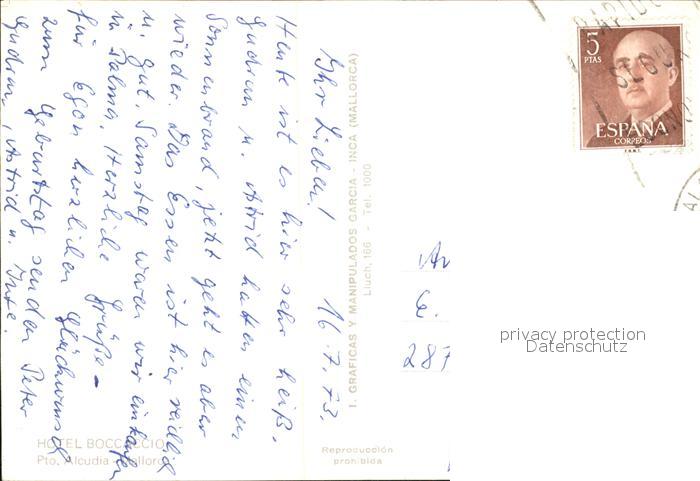 Ihr Lieben! 16.7.73.
Heute ist es hier sehr heiß.
Gudrun u. Astrid hatten einen
Sonnenbrand, jetzt geht es aber
wieder. Das Essen ist hier reichlich
u. gut. Samstag waren wir einkaufen
in Palma. Herzliche Grüße –
für Egon herzlichen Glückwunsch
zum Geburtstag senden Peter
Gudrun, Astrid u.
I. GRAFICAS Y MANIPULADOS GARCIA - INCA (MALLORCA)
Lluch, 166 - Tel. 1000
5
PTAS
ESPAÑA
CORREOS
F.N.M.T.
An
G.
287
privacy protection
Datenschutz
HOTEL BOCCACCIO
Pto. Alcudia - Mallorca
Reproducción
prohibida